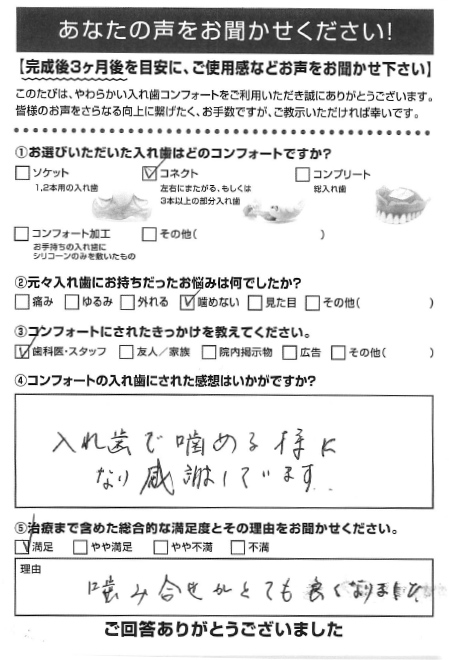 あなたの声をお聞かせください!
【完成後3ヶ月後を目安に、ご使用感などお声をお聞かせ下さい】
このたびは、やわらかい入れ歯コンフォートをご利用いただき誠にありがとうございます。
皆様のお声をさらなる向上に繋げたく、お手数ですが、ご教示いただければ幸いです。
①お選びいただいた入れ歯はどのコンフォートですか?
□ソケット ☑コネクト □コンプリート
1,2本用の入れ歯 左右にまたがる、もしくは 総入れ歯
3本以上の部分入れ歯
□コンフォート加工 □その他( )
お手持ちの入れ歯に
シリコーンのみを敷いたもの
②元々入れ歯にお持ちだったお悩みは何でしたか?
□痛み □ゆるみ □外れる ☑噛めない □見た目 □その他( )
③コンフォートにされたきっかけを教えてください。
☑歯科医・スタッフ □友人／家族 □院内掲示物 □広告 □その他( )
④コンフォートの入れ歯にされた感想はいかがですか?
入れ歯で噛める様に
なり感謝しています。
⑤治療まで含めた総合的な満足度とその理由をお聞かせください。
☑満足 □やや満足 □やや不満 □不満
理由
噛み合せがとても良くなりました
ご回答ありがとうございました